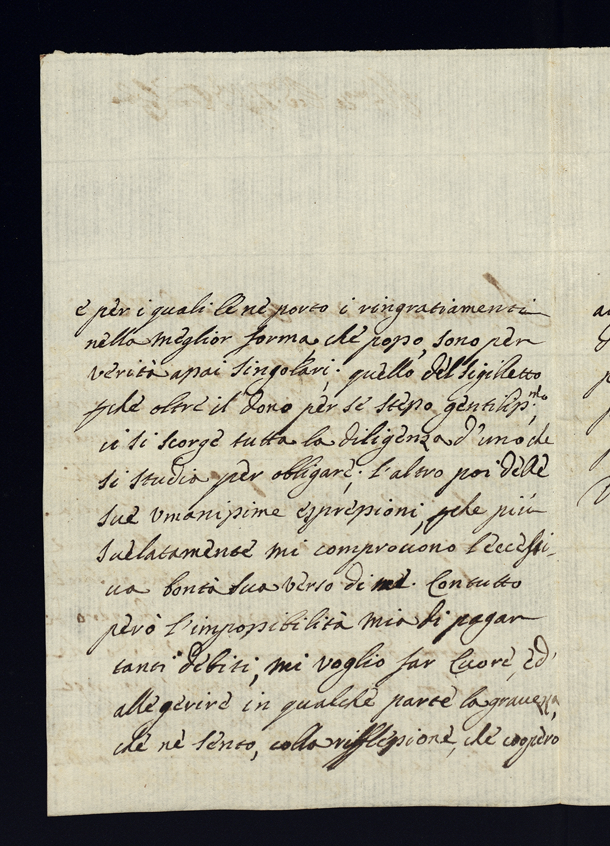 e per i quali le ne porto i ringratiamenti
nella meglior forma che posso, sono per
verità assai singolari: quello del sigilletto
pche oltre il dono per se stesso gentiliss.mo,
ui si scorge tutta la diligenza d'uno che
si studia per obligare; l'altro poi delle
sue umanissime espressioni, pche più
suelatamente mi comprouono l'ecessi
ua bontà sua verso di me. Contutto
però l'impossibilità mia di pagar
tanti debiti, mi voglio far cuore, ed
allegerire in qualche parte la grauezza,
che ne sento, colla riflessione, che coopero